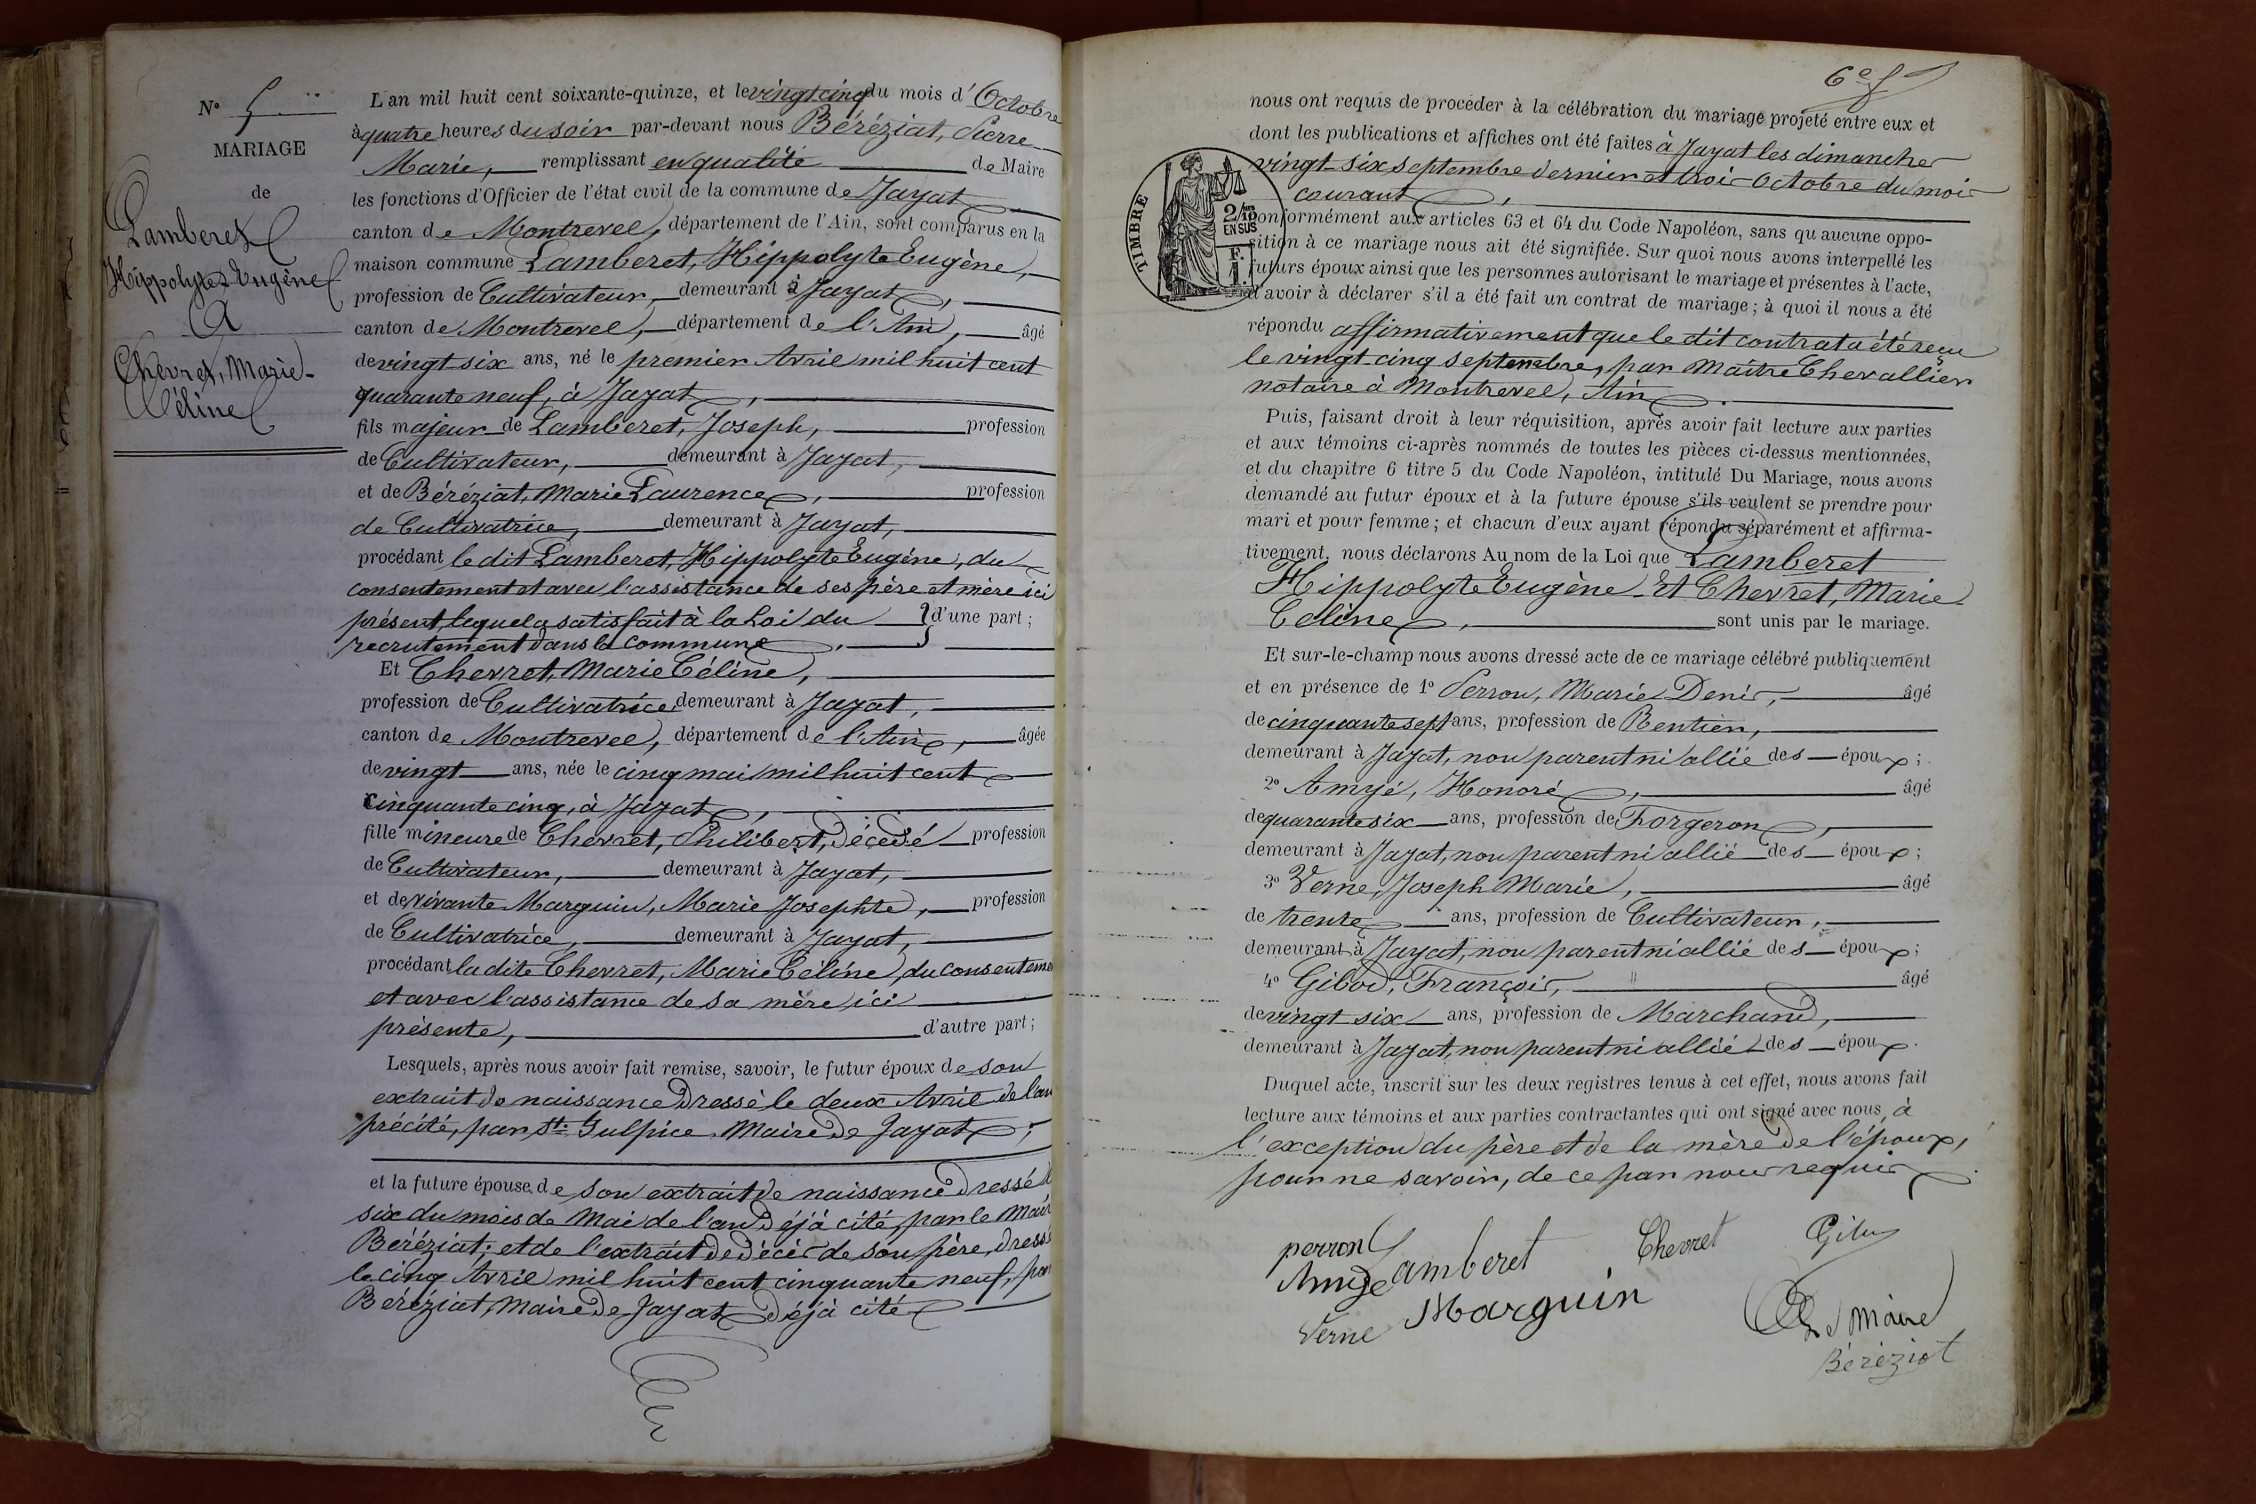 Nº 5
MARIAGE
de
Lamberet
Hippolyte Eugène
A
Chevret, Marie-
Céline
L'an mil huit cent soixante-quinze, et le vingt cinq du mois d'Octobre
à quatre heures du soir par-devant nous Béréziat, Pierre
Marie, remplissant en qualité de Maire
les fonctions d'Officier de l'état civil de la commune de Jayat
canton de Montrevel, département de l'Ain, sont comparus en la
maison commune Lamberet, Hippolyte Eugène,
profession de Cultivateur, demeurant à Jayat,
canton de Montrevel, département de l'Ain, âgé
de vingt six ans, né le premier Avril mil huit cent
quarante neuf, à Jayat,
fils majeur de Lamberet, Joseph, profession
de Cultivateur, demeurant à Jayat,
et de Béréziat, Marie Laurence, profession
de Cultivatrice, demeurant à Jayat,
procédant le dit Lamberet, Hippolyte Eugène, du
consentement et avec l'assistance de ses père et mère ici
présent, lequel a satisfait à la Loi du } d'une part ;
recrutement dans la commune.
Et Chevret, Marie Céline,
profession de Cultivatrice demeurant à Jayat,
canton de Montrevel, département de l'Ain, âgée
de vingt ans, née le cinq mai mil huit cent
cinquante cinq, à Jayat,
fille mineure de Chevret, Philibert, décédé profession
de Cultivateur, demeurant à Jayat,
et de vivante Marguin, Marie Josephte, profession
de Cultivatrice, demeurant à Jayat,
procédant la dite Chevret, Marie Céline, du consenteme
et avec l'assistance de sa mère ici
présente, d'autre part ;
Lesquels, après nous avoir fait remise, savoir, le futur époux de son
extrait de naissance dressé le deux Avril de l'an
précité, par St. Sulpice Maire de Jayat ;
et la future épouse de son extrait de naissance dressé
six du mois de Mai de l'an déjà cité, par le Mair
Béréziat ; et de l'extrait de décès de son père, dressé
le cinq Avril mil huit cent cinquante neuf, par
Béréziat, Maire de Jayat déjà cité
6e f
nous ont requis de procéder à la célébration du mariage projeté entre eux et
dont les publications et affiches ont été faites à Jayat les dimanches
vingt-six septembre dernier et trois Octobre du mois
courant,
TIMBRE
2/10 EN SUS
F. 1
conformément aux articles 63 et 64 du Code Napoléon, sans qu'aucune oppo-
sition à ce mariage nous ait été signifiée. Sur quoi nous avons interpellé les
futurs époux ainsi que les personnes autorisant le mariage et présentes à l'acte,
d'avoir à déclarer s'il a été fait un contrat de mariage ; à quoi il nous a été
répondu affirmativement que le dit contrat a été reçu
le vingt-cinq septembre, par Maître Chevallier
notaire à Montrevel, Ain.
Puis, faisant droit à leur réquisition, après avoir fait lecture aux parties
et aux témoins ci-après nommés de toutes les pièces ci-dessus mentionnées,
et du chapitre 6 titre 5 du Code Napoléon, intitulé Du Mariage, nous avons
demandé au futur époux et à la future épouse s'ils veulent se prendre pour
mari et pour femme ; et chacun d'eux ayant répondu séparément et affirma-
tivement, nous déclarons Au nom de la Loi que Lamberet
Hippolyte Eugène Et Chevret, Marie
Céline, sont unis par le mariage.
Et sur-le-champ nous avons dressé acte de ce mariage célébré publiquement
et en présence de 1º Perron, Marie Denis, âgé
de cinquante sept ans, profession de Rentier,
demeurant à Jayat, non parent ni allié des époux ;
2º Amyé, Honoré, âgé
de quarante six ans, profession de Forgeron,
demeurant à Jayat, non parent ni allié des époux ;
3º Verne, Joseph Marie, âgé
de trente ans, profession de Cultivateur,
demeurant à Jayat, non parent ni allié des époux ;
4º Gibod, François, âgé
de vingt six ans, profession de Marchand,
demeurant à Jayat, non parent ni allié des époux.
Duquel acte, inscrit sur les deux registres tenus à cet effet, nous avons fait
lecture aux témoins et aux parties contractantes qui ont signé avec nous, à
l'exception du père et de la mère de l'époux,
pour ne savoir, de ce par nous requis.
perron Lamberet Chevret
Amyé Marguin
Verne
Le Maire
Béréziat